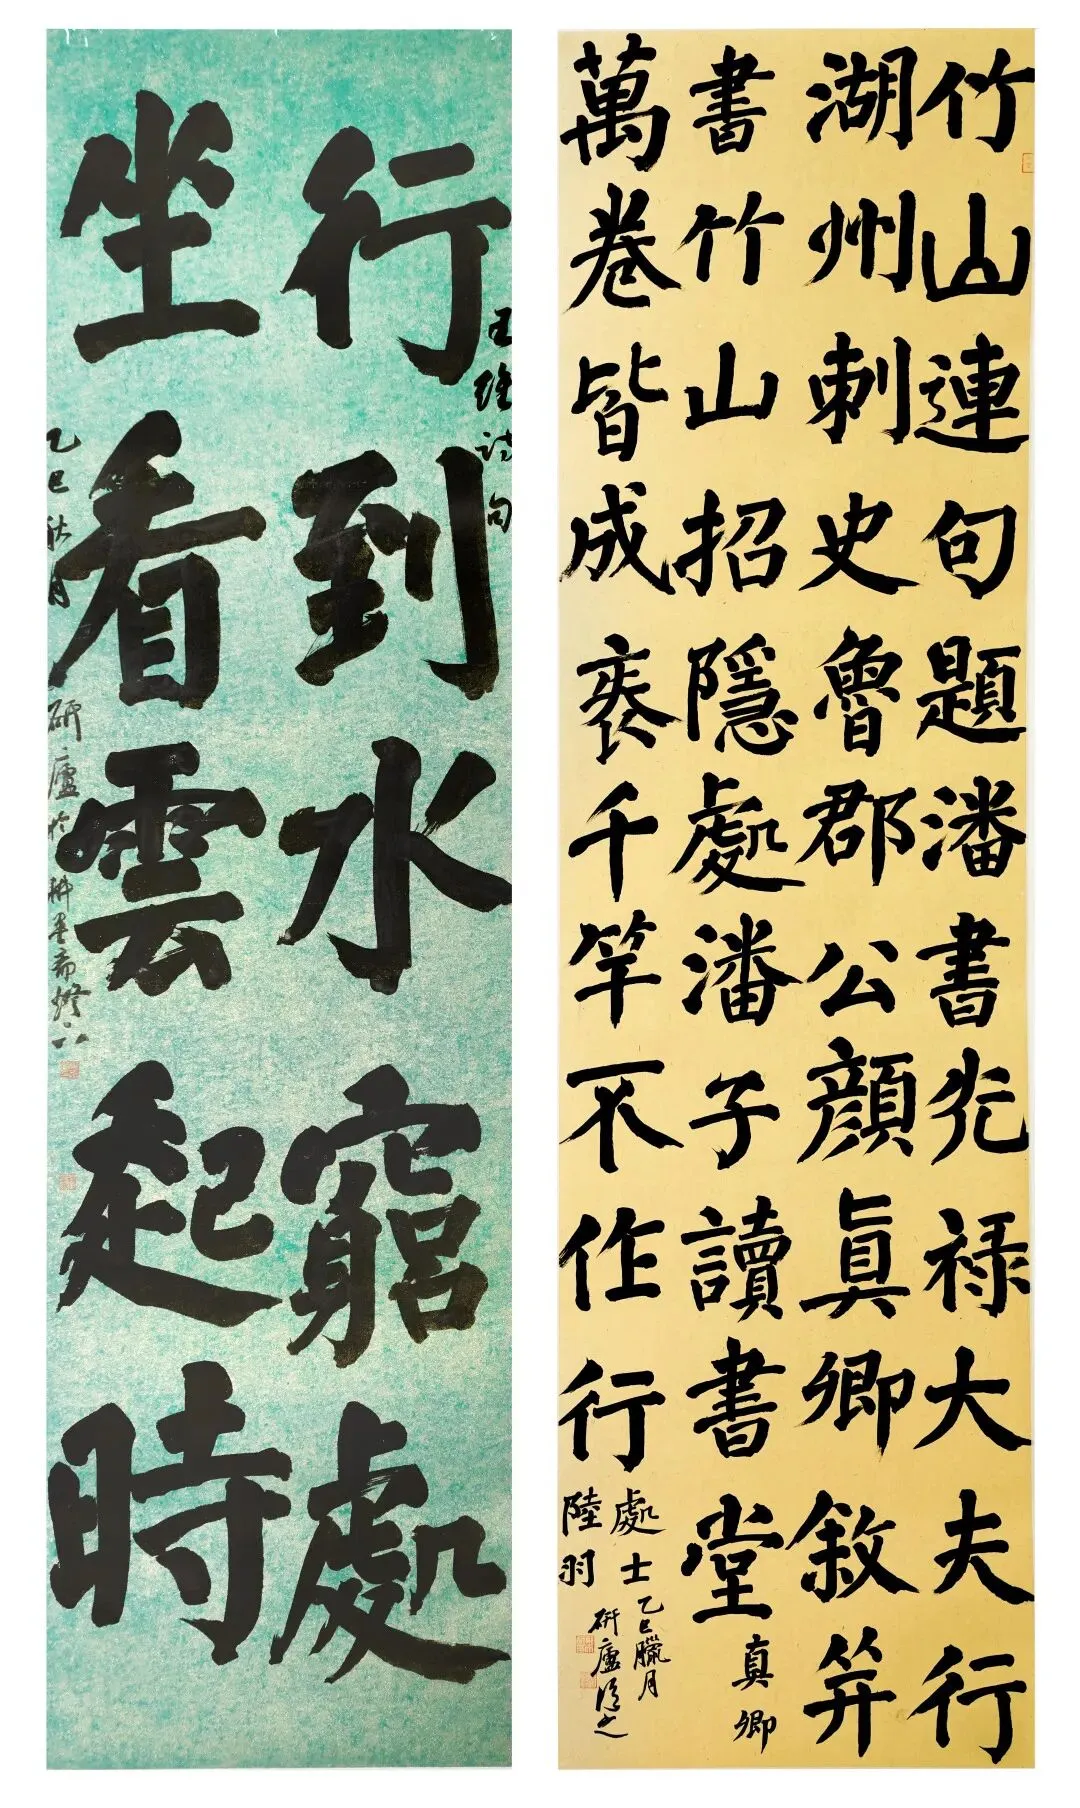 行到水窮處
坐看雲起時
王維诗句
乙巳秋月
研廬於耕墨斋燈下
竹山連句題潘書光禄大夫行
湖州刺史魯郡公顏眞卿敘并
書竹山招隱處潘子讀書堂真卿
萬卷皆成袠千竿不作行
處士
陸羽
乙巳臘月
研廬臨之